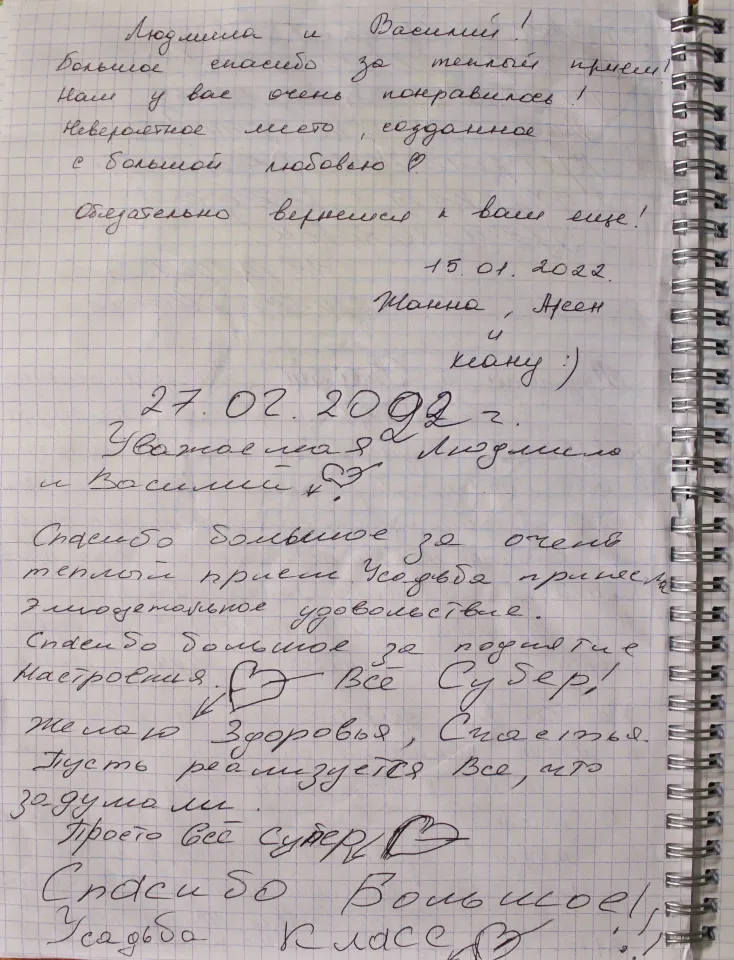 Людмила и Василий!
Большое спасибо за теплый прием!
Нам у вас очень понравилось!
Невероятное место, созданное
с большой любовью ♡
Обязательно вернемся к вам еще!
15.01.2022.
Жанна, Арсен
и
Киану :)
27.02.2022 г.
Уважаемая Людмила
и Василий !
Спасибо большое за очень
теплый прием Усадьба принесла
удовольствие.
Спасибо большое за поднятие
Настроения. Всё Субер!
Желаю Здоровья, Счастья.
Пусть реализуется Все, что
задумали.
Просто всё супер
Спасибо Большое!,
Усадьба Класс !!